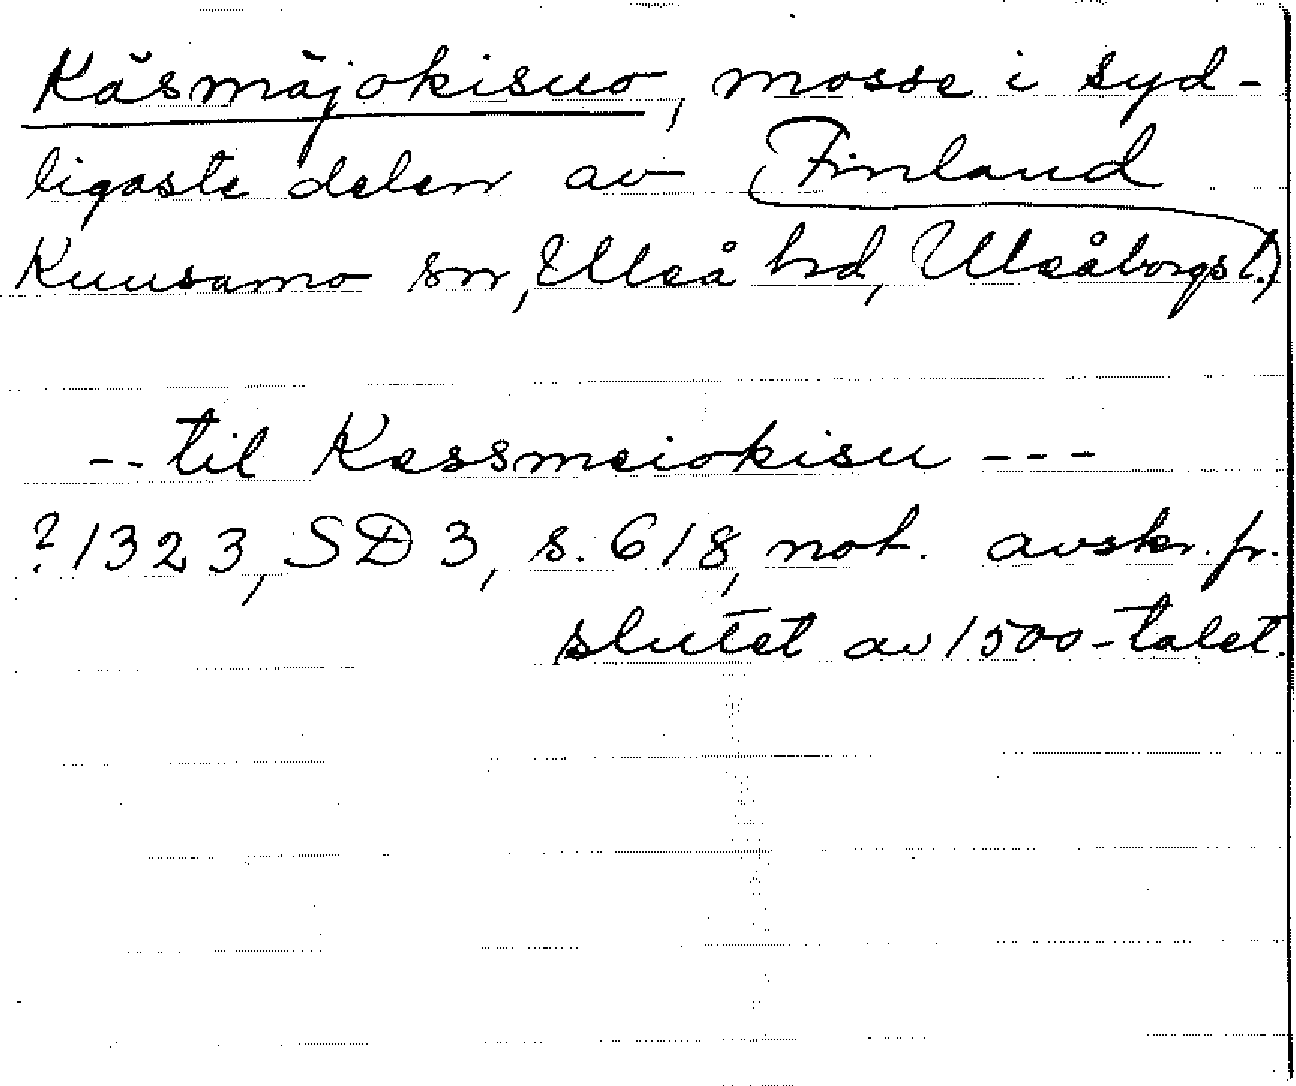 Käsmäjokisuo, mosse i syd-
ligaste delen av Finland
Kuusamo sn, Uleå hd, Uleåborgs l.)
-- til Kessmeiokisu ---
? 1323, SD 3, s. 618, not. avskr. fr.
slutet av 1500-talet.